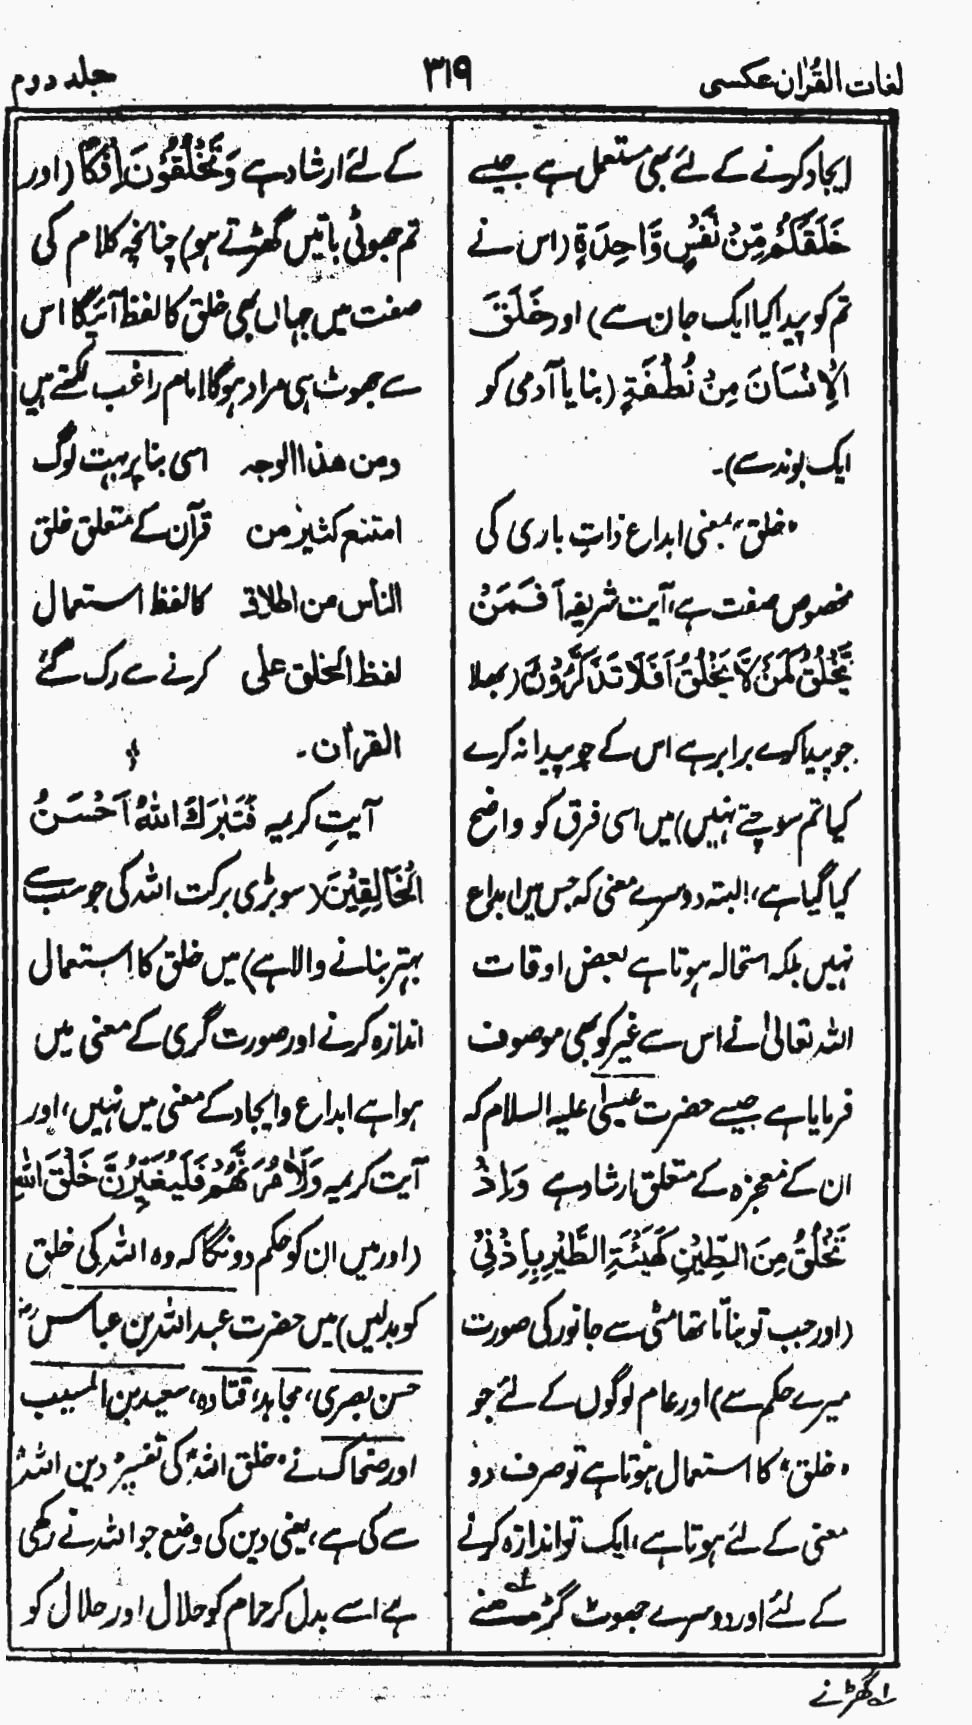 لغات القرآن عکسی
۳۱۹
جلد دوم
ایجاد کرنے کے لئے بھی مستعمل ہے جیسے
خَلَقَكُمْ مِّنْ نَّفْسٍ وَّاحِدَةٍ (اس نے
تم کو پیدا کیا ایک جان سے) اور خَلَقَ
الْاِنْسَانَ مِنْ نُّطْفَةٍ (بنایا آدمی کو
ایک بوند سے)۔
"خلق" بمعنی ابداع ذاتِ باری کی
مخصوص صفت ہے، آیت شریفہ اَفَمَنْ
يَّخْلُقُ كَمَنْ لَّا يَخْلُقُ اَفَلَا تَذَكَّرُوْنَ (بھلا
جو پیدا کرے برابر ہے اس کے جو پیدا نہ کرے
کیا تم سوچتے نہیں) میں اسی فرق کو واضح
کیا گیا ہے، البتہ دوسرے معنی کہ جس میں ابداع
نہیں بلکہ استحالہ ہوتا ہے بعض اوقات
اللہ تعالیٰ نے اس سے غیر کو بھی موصوف
فرمایا ہے جیسے حضرت عیسیٰ علیہ السلام کہ
ان کے معجزہ کے متعلق ارشاد ہے وَاِذْ
تَخْلُقُ مِنَ الطِّيْنِ كَهَيْئَةِ الطَّيْرِ بِاِذْنِيْ
(اور جب تو بناتا تھا مٹی سے جانور کی صورت
میرے حکم سے) اور عام لوگوں کے لئے جو
"خلق" کا استعمال ہوتا ہے تو صرف دو
معنی کے لئے ہوتا ہے، ایک تو اندازہ کرنے
کے لئے اور دوسرے جھوٹ گڑھنے لہ
کے لئے ارشاد ہے وَتَخْلُقُوْنَ اِفْكًا (اور
تم جھوٹی باتیں گھڑتے ہو) چنانچہ کلام کی
صفت میں جہاں بھی خلق کا لفظ آئیگا اس
سے جھوٹ ہی مراد ہوگا امام راغب لکھتے ہیں
ومن هذا الوجه اسی بنا پر بہت لوگ
امتنع كثير من قرآن کے متعلق خلق
الناس من اطلاق کا لفظ استعمال
لفظ الخلق على کرنے سے رک گئے
القرآن۔
آیتِ کریمہ فَتَبٰرَكَ اللّٰهُ اَحْسَنُ
الْخَالِقِيْنَ (سو بڑی برکت اللہ کی جو سب سے
بہتر بنانے والا ہے) میں خلق کا استعمال
اندازہ کرنے اور صورت گری کے معنی میں
ہوا ہے ابداع و ایجاد کے معنی میں نہیں، اور
آیت کریمہ وَلَاٰمُرَنَّهُمْ فَلَيُغَيِّرُنَّ خَلْقَ اللّٰهِ
(اور میں ان کو حکم دونگا کہ وہ اللہ کی خلق
کو بدلیں) میں حضرت عبداللہ بن عباس رضہ
حسن بصری، مجاہد، قتادہ، سعید بن المسیب
اور ضحاک نے "خلق اللہ" کی تفسیر "دین اللہ"
سے کی ہے، یعنی دین کی وضع جو اللہ نے رکھی
ہے اسے بدل کر حرام کو حلال اور حلال کو
لہ گھڑنے